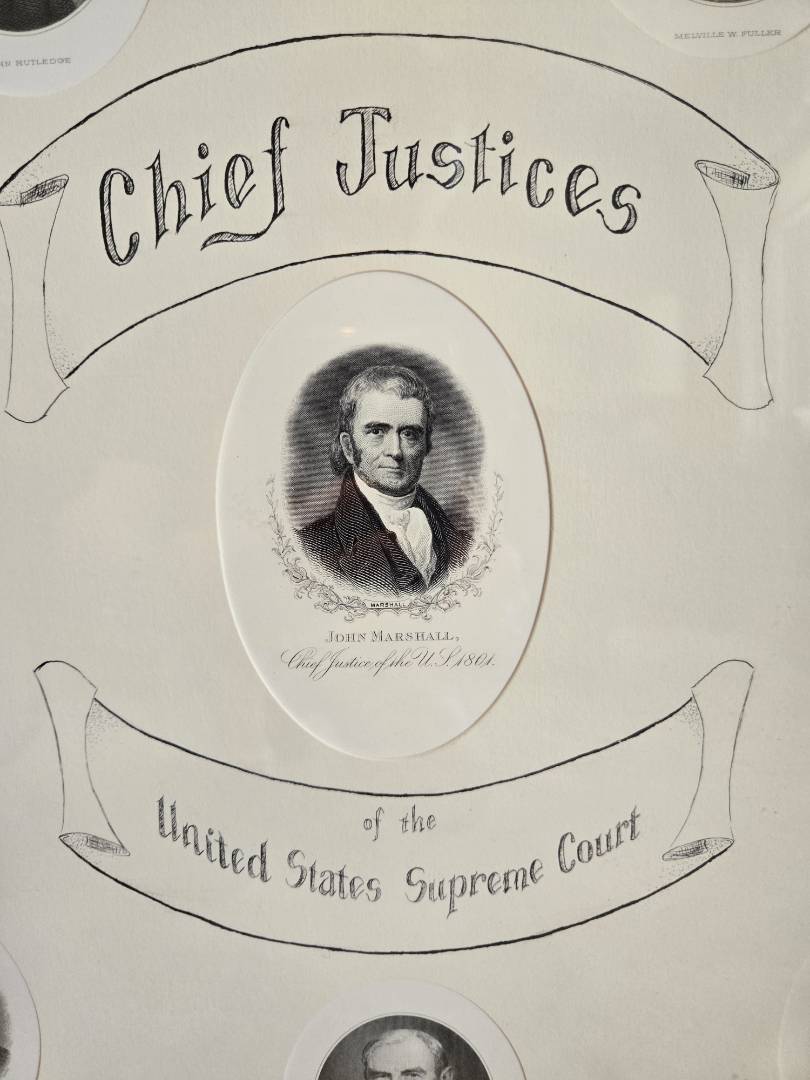 HN RUTLEDGE
MELVILLE W. FULLER
Chief Justices
MARSHALL
JOHN MARSHALL,
Chief Justice of the U.S. 1801.
of the
United States Supreme Court